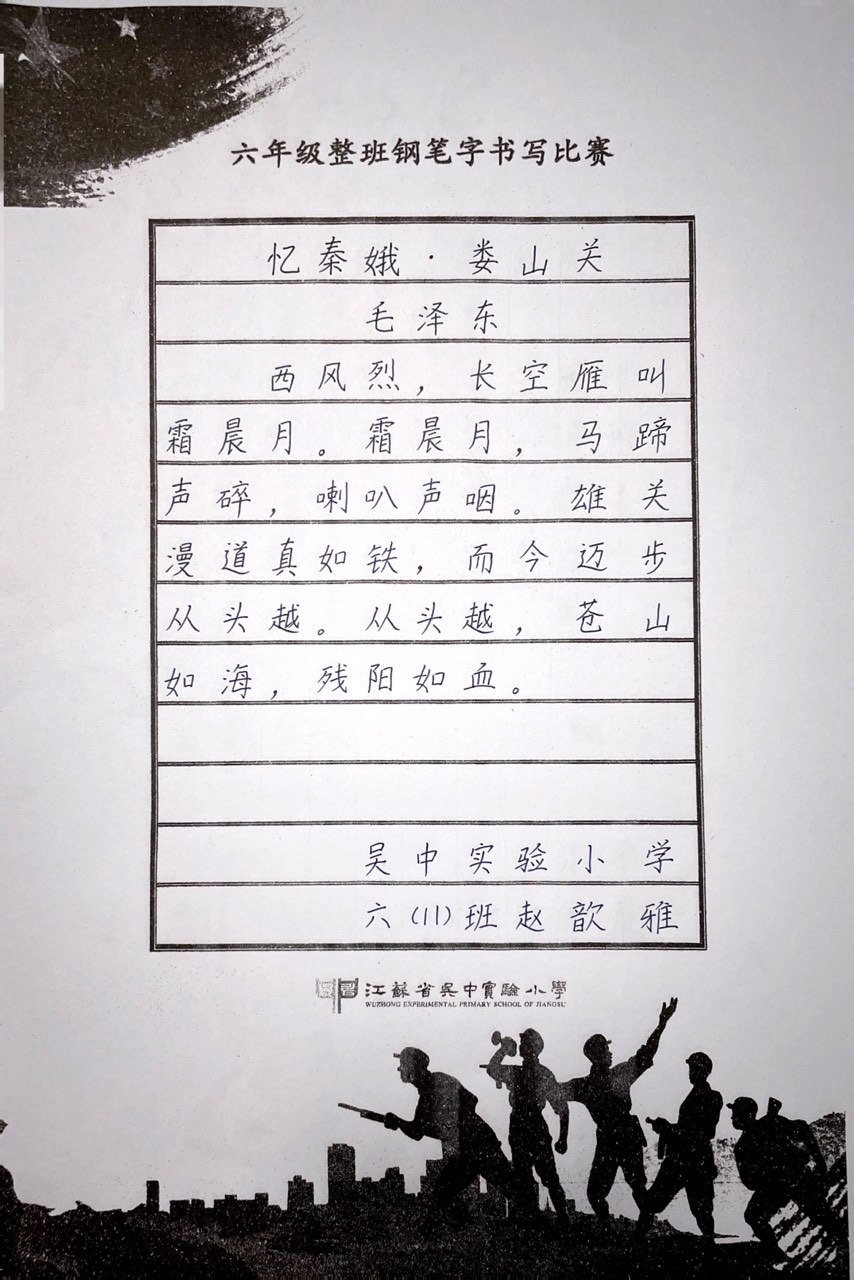 六年级整班钢笔字书写比赛
忆秦娥·娄山关
毛泽东
西风烈，长空雁叫
霜晨月。霜晨月，马蹄
声碎，喇叭声咽。雄关
漫道真如铁，而今迈步
从头越。从头越，苍山
如海，残阳如血。
吴中实验小学
六(11)班赵歆雅
江蘇省吳中實驗小學
WUZHONG EXPERIMENTAL PRIMARY SCHOOL OF JIANGSU